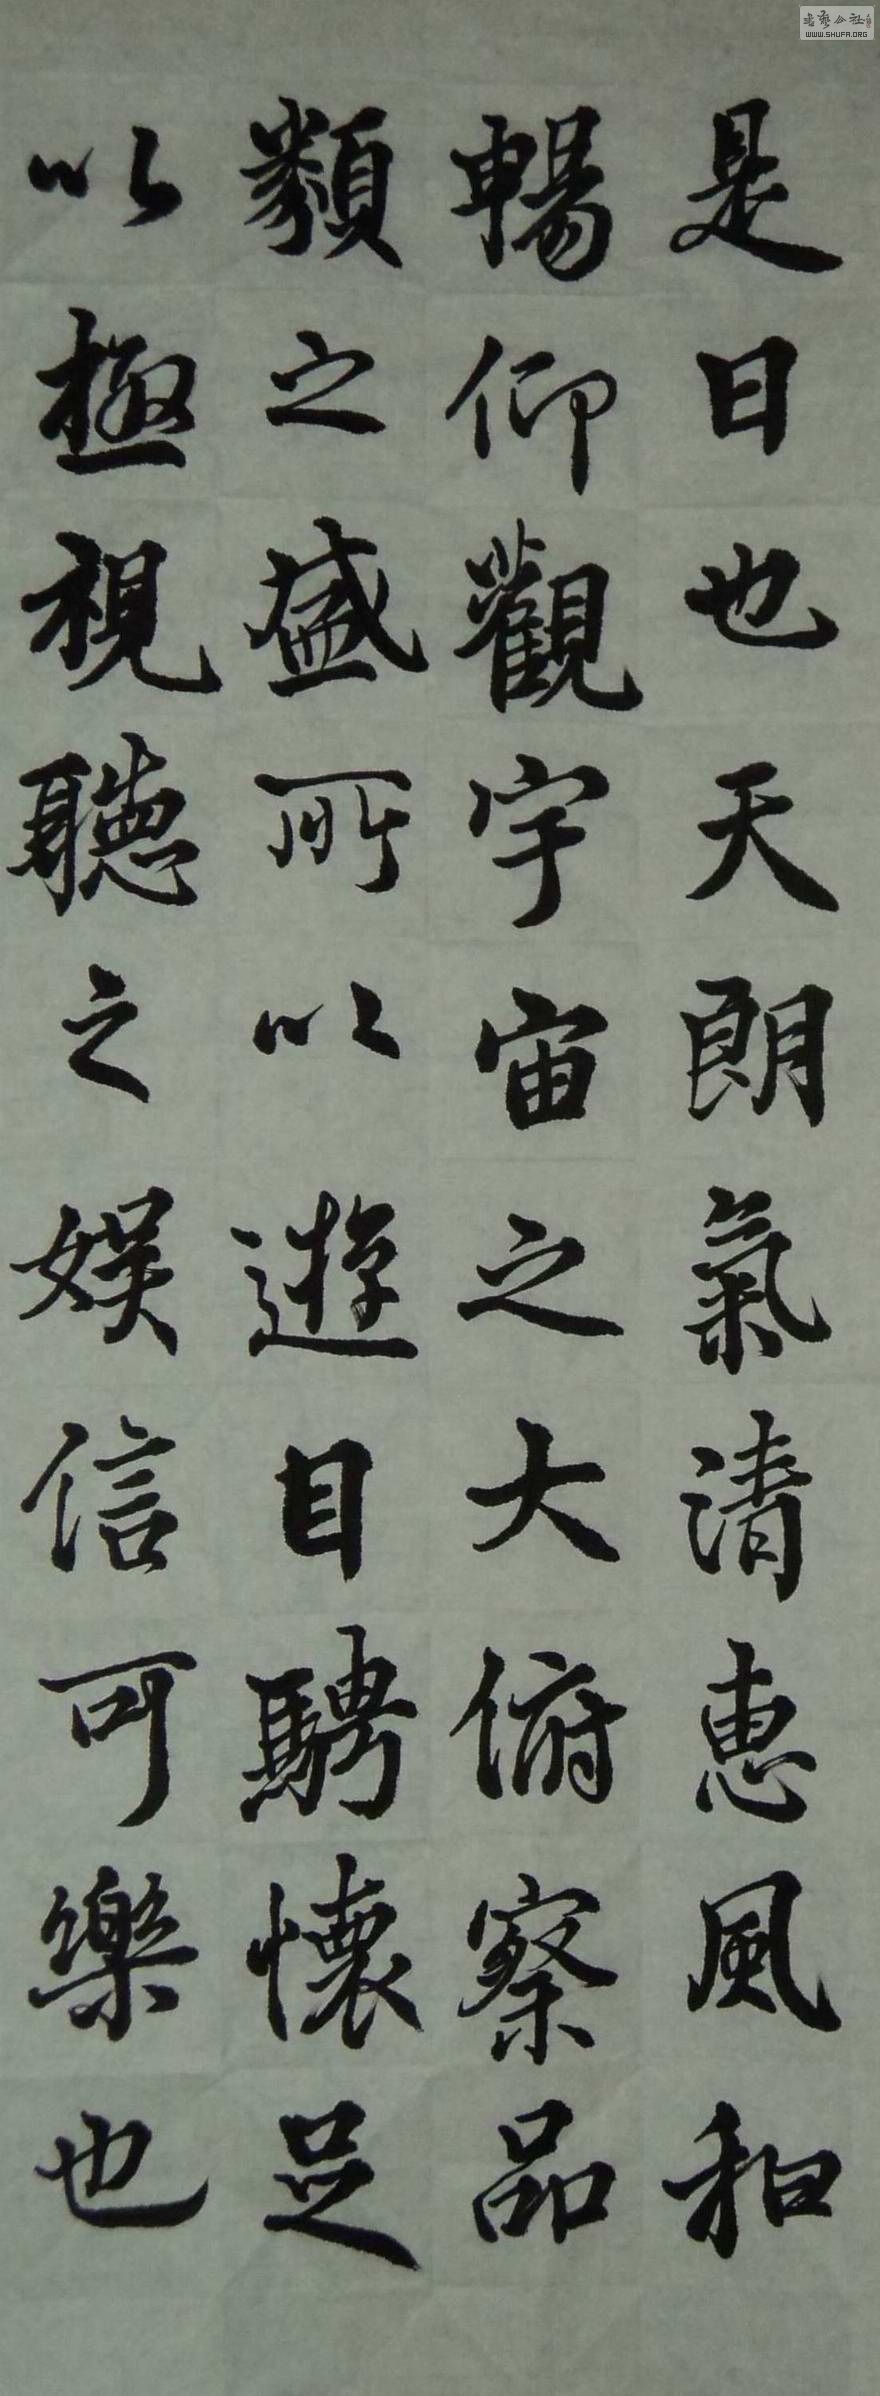 是日也天朗氣清惠風和
暢仰觀宇宙之大俯察品
類之盛所以遊目騁懷足
以極視聽之娛信可樂也
WWW.SHUFA.ORG